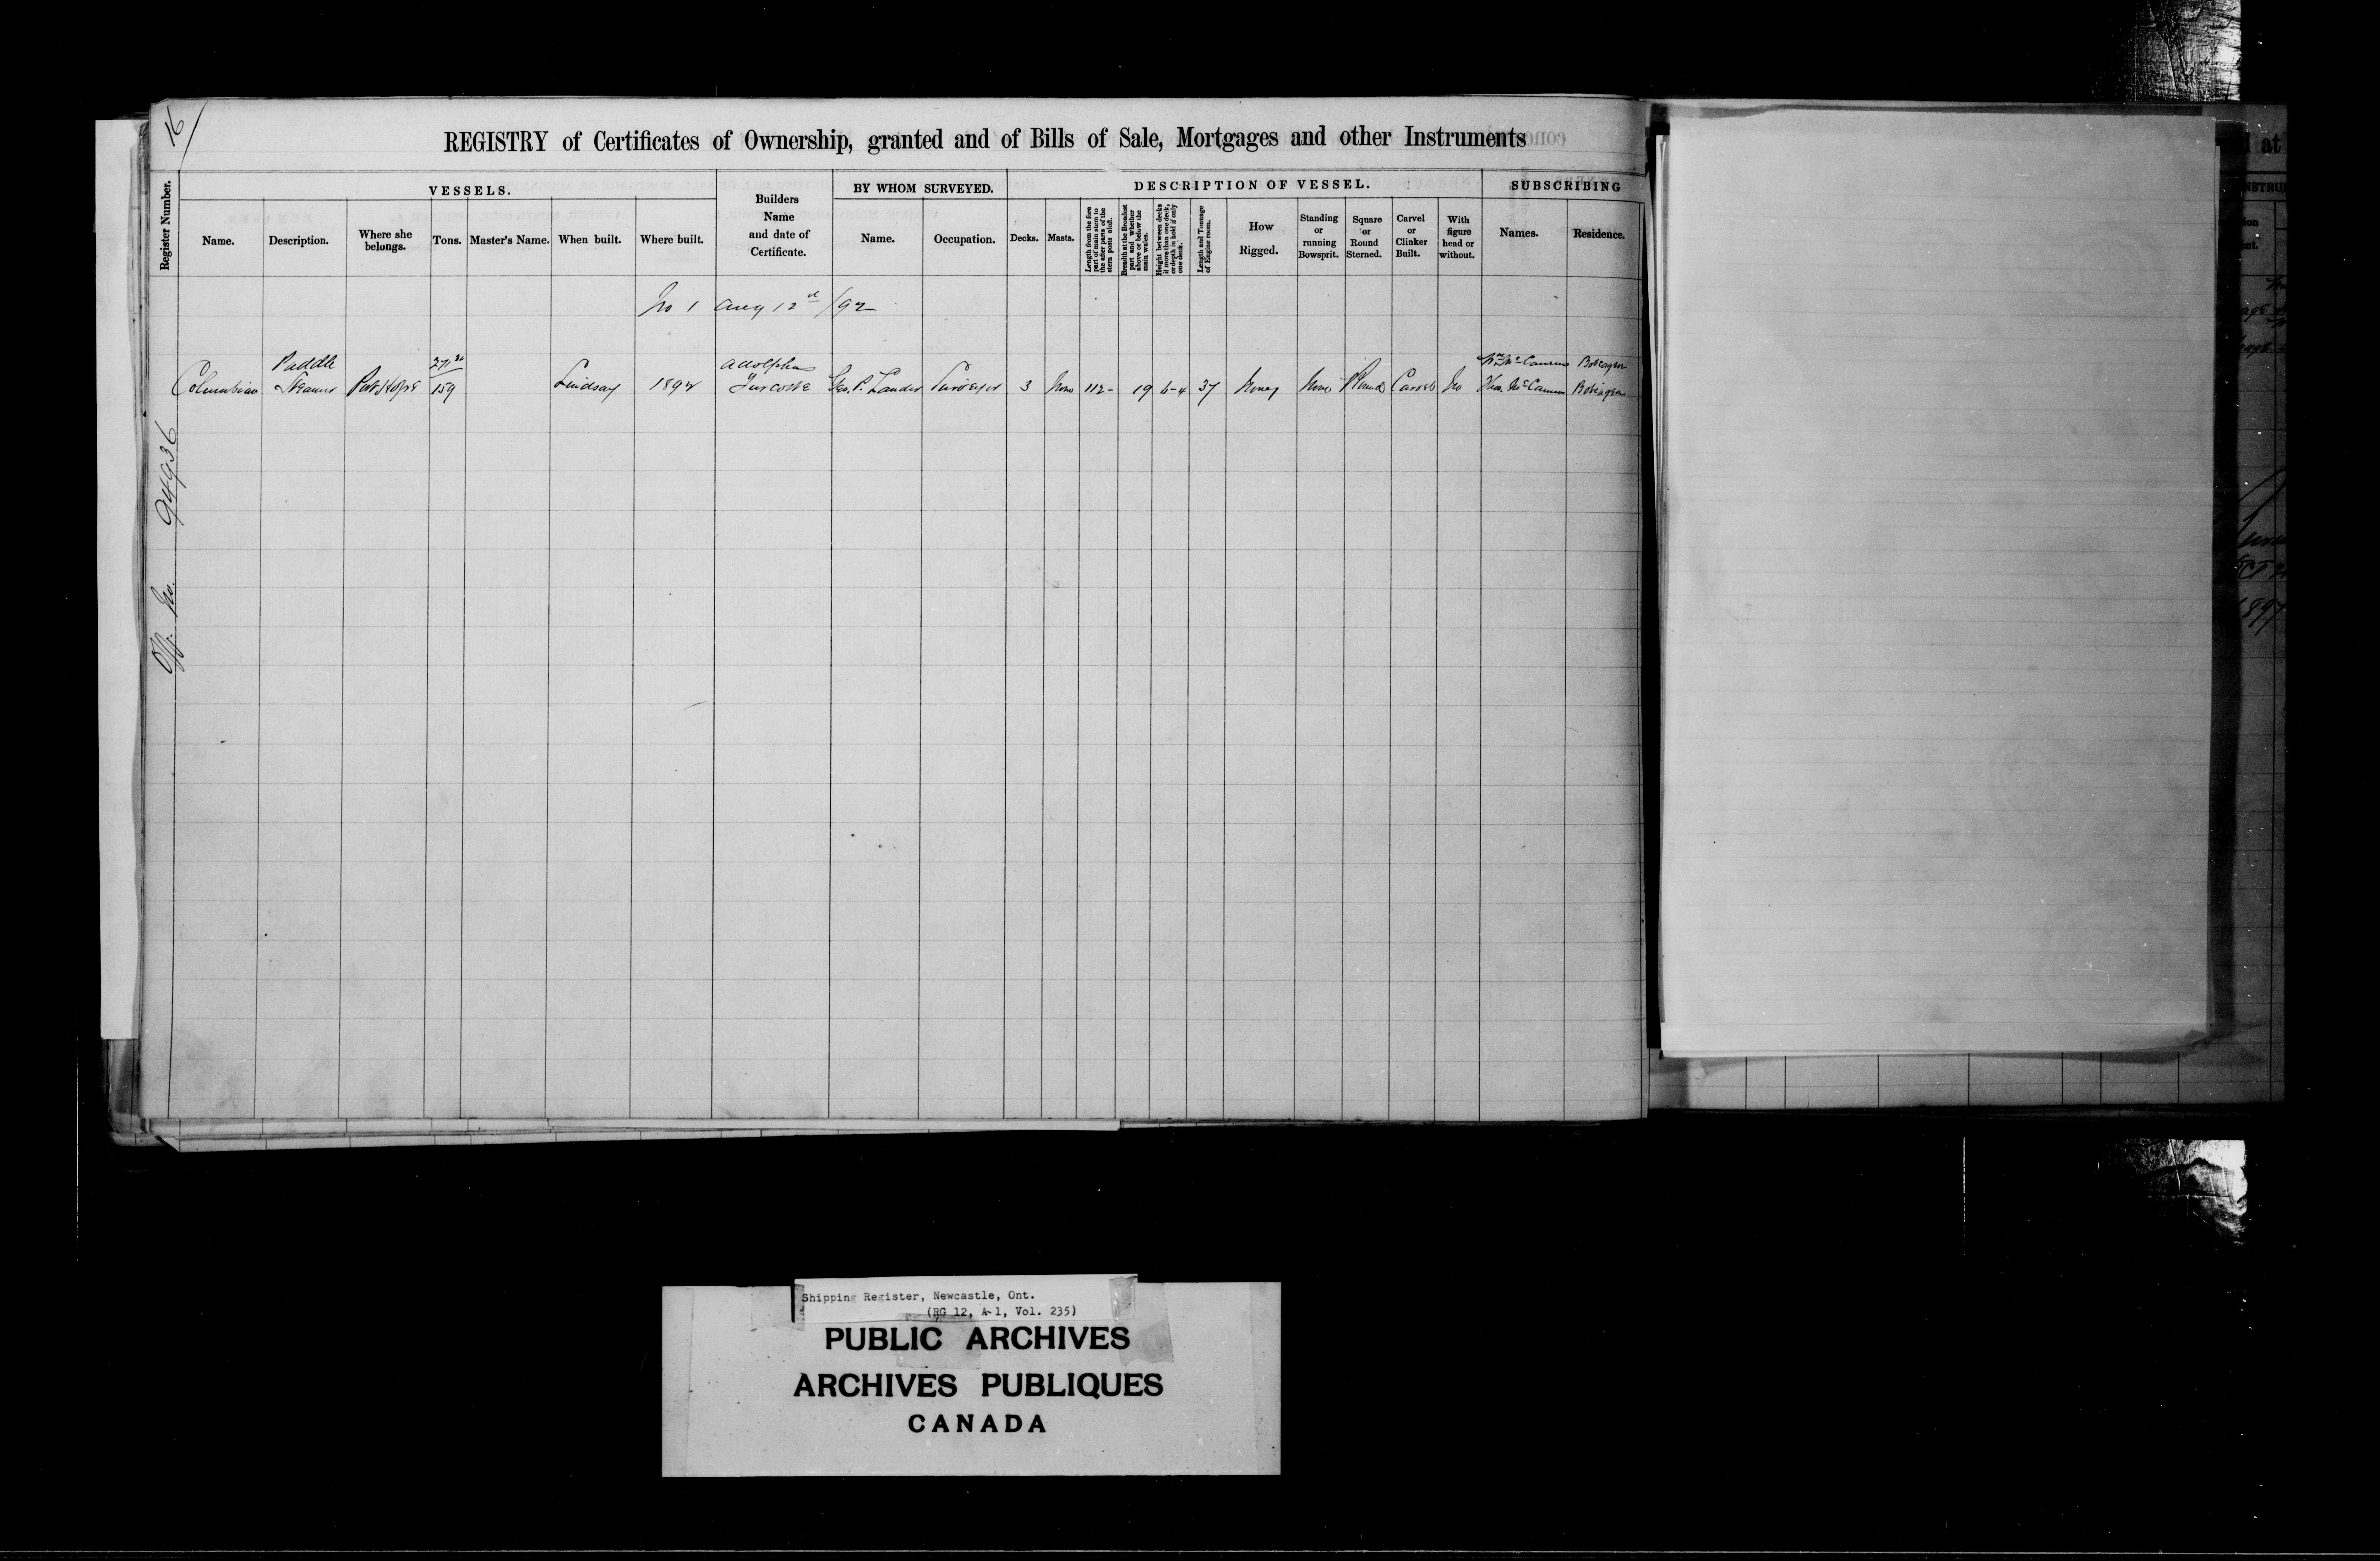 16
REGISTRY of Certificates of Ownership, granted and of Bills of Sale, Mortgages and other Instruments
Register Number.
VESSELS.
Name.
Description.
Where she belongs.
Tons.
Master's Name.
When built.
Where built.
Builders Name and date of Certificate.
BY WHOM SURVEYED.
Name.
Occupation.
DESCRIPTION OF VESSEL.
Decks.
Masts.
Length from the fore part of main stem to the after parts of the stern posts aloft.
Breadth at the Broadest part and whether above or below the main wales.
Height between decks if more than one deck, or depth in hold if only one deck.
Length and Tonnage of Engine room.
How Rigged.
Standing or running Bowsprit.
Square or Round Sterned.
Carvel or Clinker Built.
With figure head or without.
SUBSCRIBING
Names.
Residence.
No 1 Aug 12 /92
Columbian
Paddle Steamer
Port Hope
159
Lindsay
1892
Adolphus Turcotte
Geo. P. Lander
Surveyor
3
None
112
19
6-4
37
None
None
Round
Carvel
No
Wm McCamus Bobcaygeon
Thos. McCamus Bobcaygeon
Off. No. 94936
1897
Shipping Register, Newcastle, Ont.
(RG 12, A-1, Vol. 235)
PUBLIC ARCHIVES
ARCHIVES PUBLIQUES
CANADA